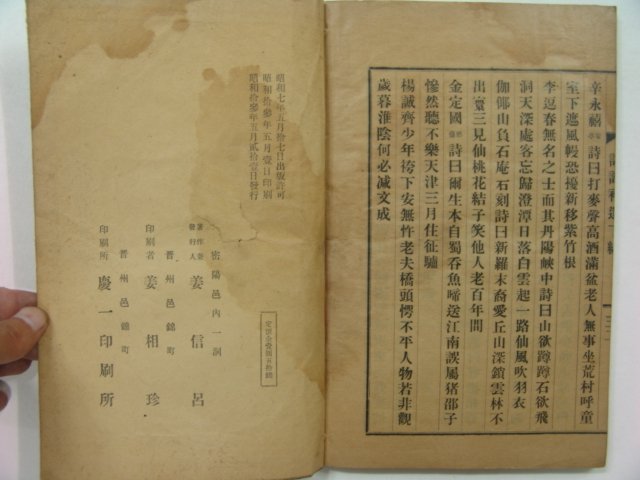 辛永禧 詩曰打麥聲高酒滿盆老人無事坐荒村呼童
室下遮風幔恐擾新移紫竹根
李逗春無名之士而其丹陽峽中詩曰山欲蹲蹲石欲飛
洞天深處客忘歸澄潭日落白雲起一路仙風吹羽衣
伽倻山負石庵石刻詩曰新羅末裔愛丘山深鎖雲林不
出寰三見仙桃花結子笑他人老百年間
金定國 詩曰爾生本自蜀吞魚啼送江南誤屬猪邵子
慘然聽不樂天津三月住征驢
楊誠齊少年袴下安無忤老夫橋頭愕不平人物若非觀
歲暮淮陰何必減文成
昭和七年五月拾七日出版許可
昭和拾參年五月壹日印刷
昭和拾參年五月貳拾壹日發行
密陽邑內一洞
著作兼
發行人 姜信呂
晋州邑錦町
印刷者 姜相珍
晋州邑錦町
印刷所 慶一印刷所